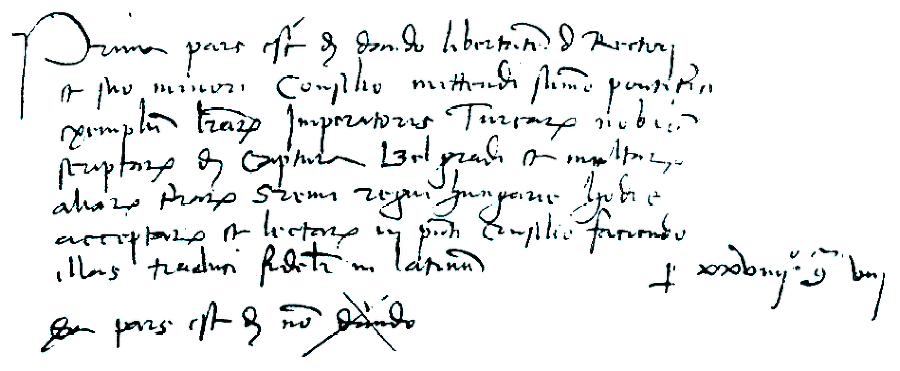 Prima pars est de dando libertatem d. Rectori
et suo minori Consilio mittendi summo pontifici
exemplum lrarum Imperatoris Turcarum nobis
scriptarum de captura Belgradi et multarum
aliarum terrarum Sremi regni hungarie hodie
acceptarum et lectarum in pnti Consilio faciendo
illas traduci fidelr in latinum
pars est de nō dando